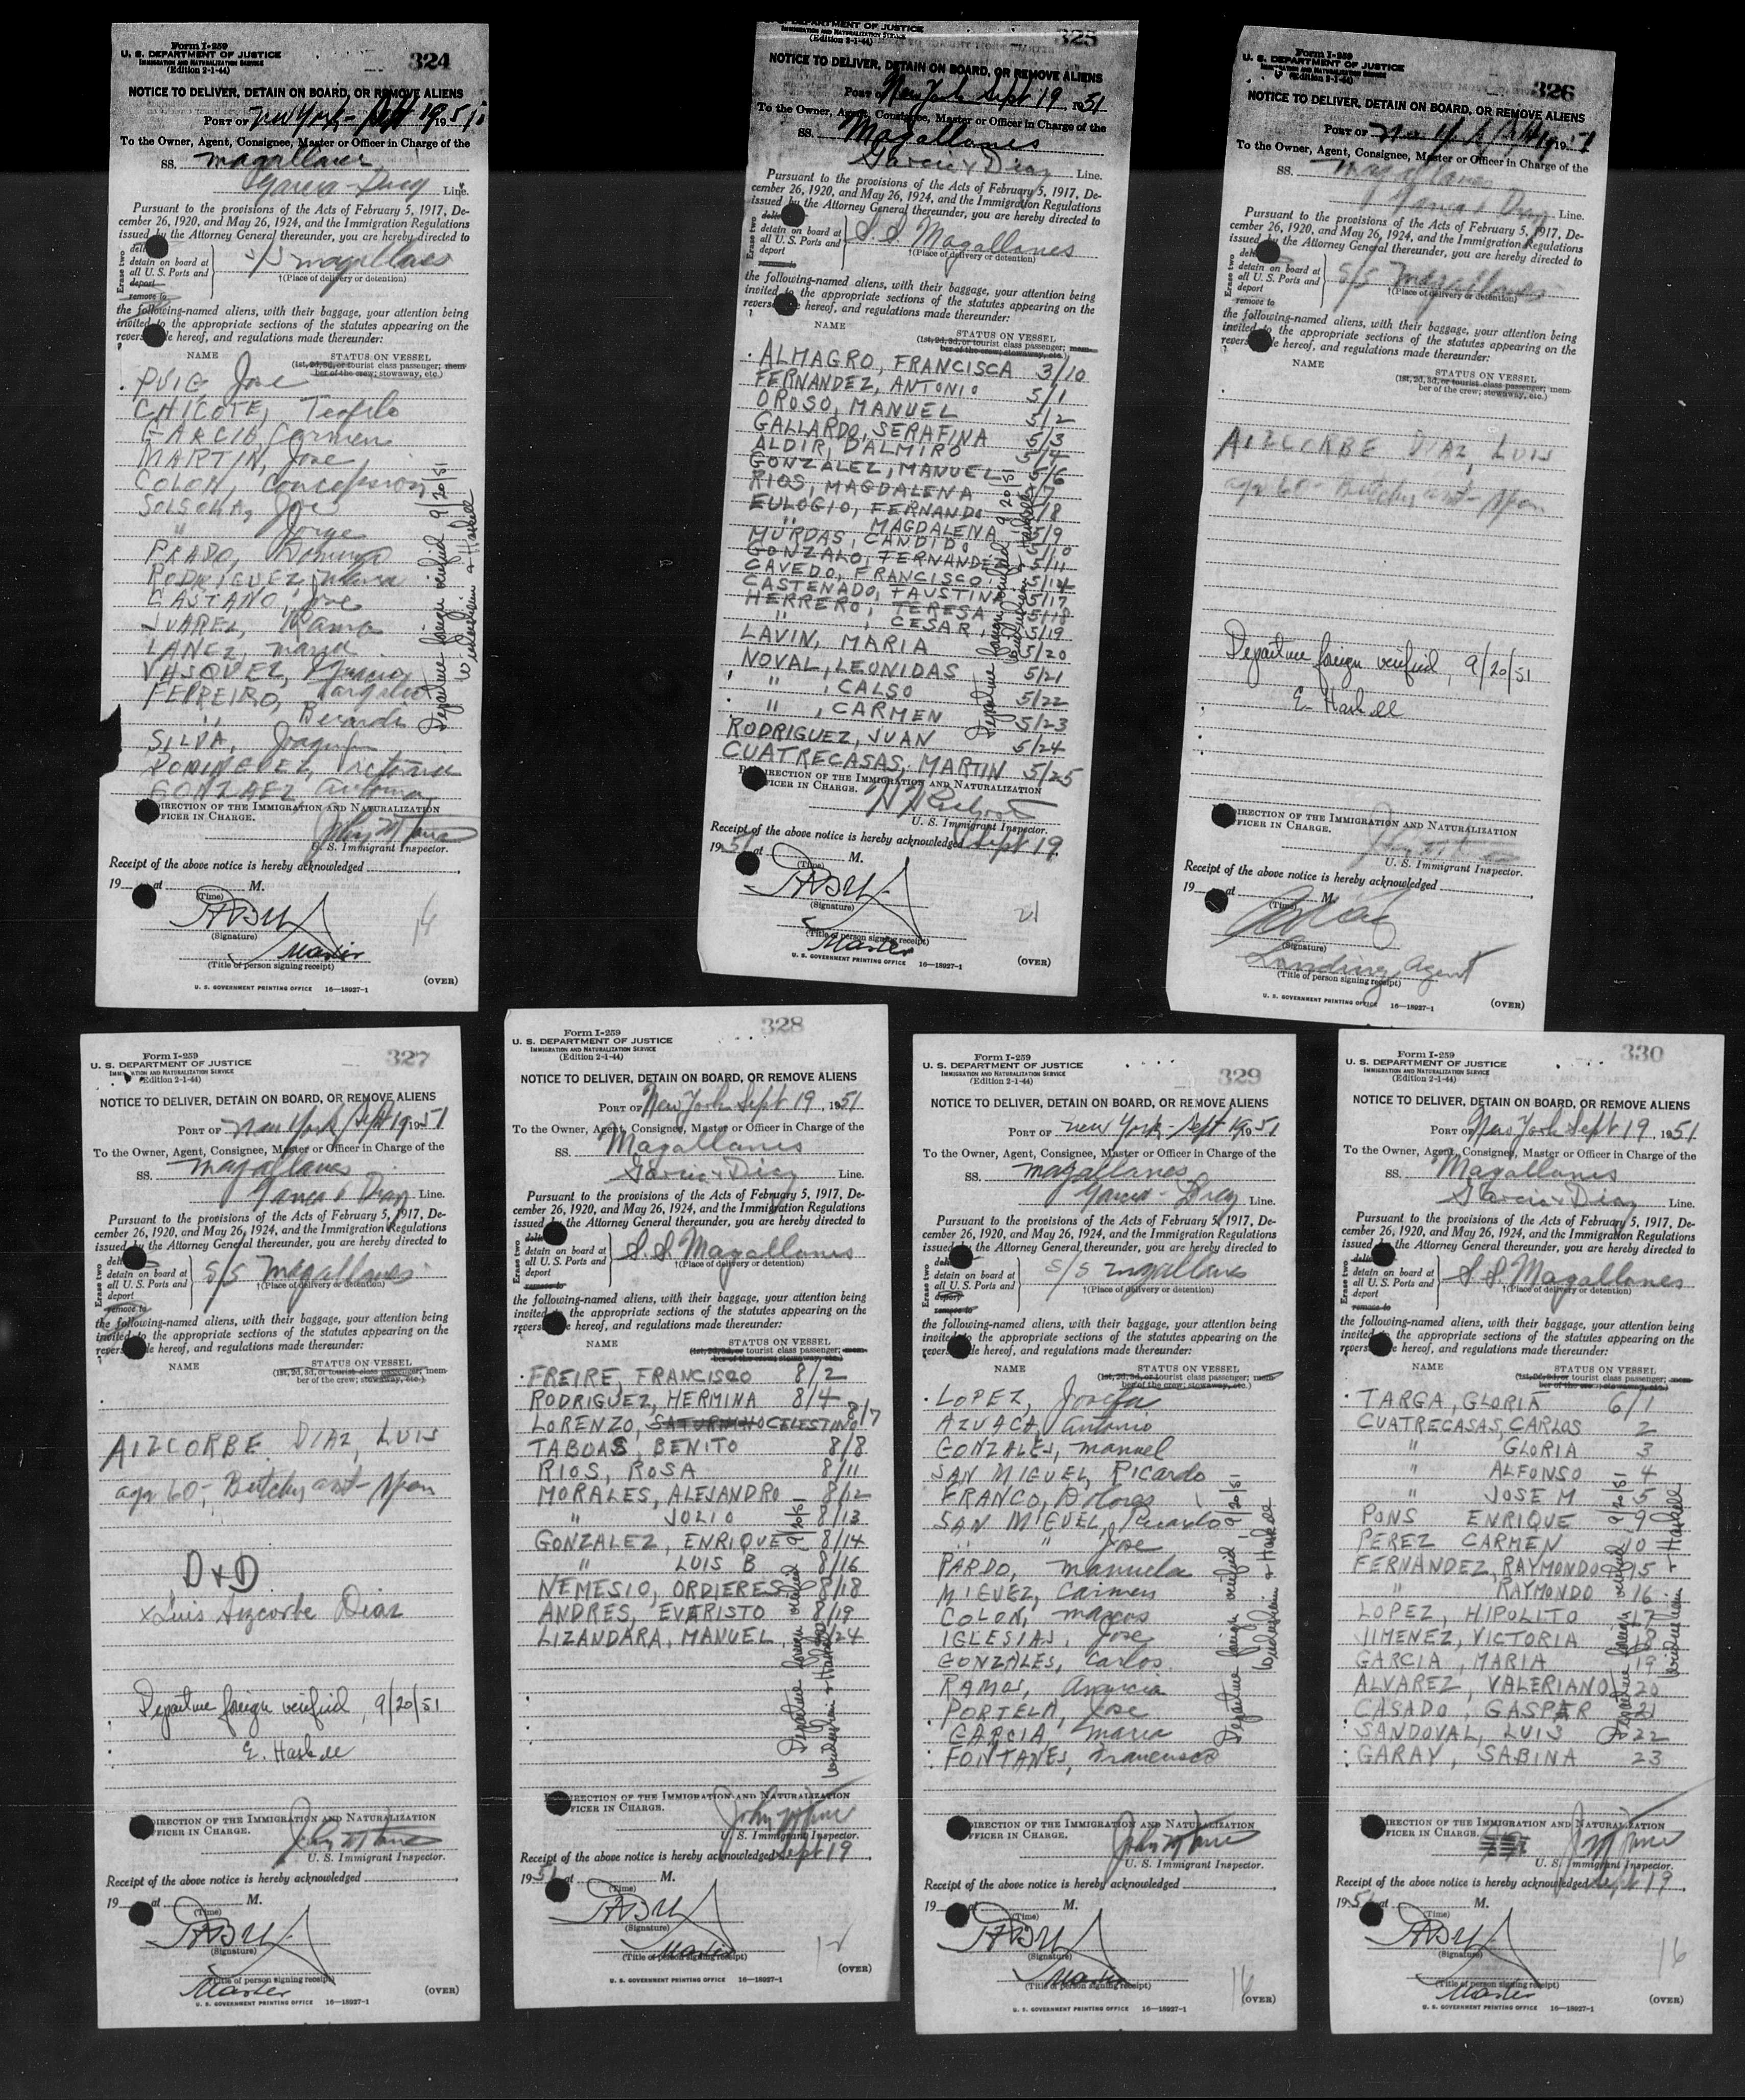 324
Form I-259
U. S. DEPARTMENT OF JUSTICE
IMMIGRATION AND NATURALIZATION SERVICE
(Edition 2-1-44)
NOTICE TO DELIVER, DETAIN ON BOARD, OR REMOVE ALIENS
PORT OF New York - Sept 19 1951
To the Owner, Agent, Consignee, Master or Officer in Charge of the
SS. Magallanes
Garcia - Diaz Line.
Pursuant to the provisions of the Acts of February 5, 1917, De-
cember 26, 1920, and May 26, 1924, and the Immigration Regulations
issued by the Attorney General thereunder, you are hereby directed to
Erase two
detain on board at
all U. S. Ports and
deport
remove to
S/S Magallanes
†(Place of delivery or detention)
the following-named aliens, with their baggage, your attention being
invited to the appropriate sections of the statutes appearing on the
reverse hereof, and regulations made thereunder:
NAME STATUS ON VESSEL
(1st, 2d, 3d, or tourist class passenger; mem-
ber of the crew; stowaway, etc.)
PUIG Jose
CHICOTE, Teofilo
GARCIA, Carmen
MARTIN, Jose
COLON, Concepcion
SOLSONA, Jose
" Jorge
PRADO, Domingo
RODRIGUEZ, Maria
CASTANO, Jose
JUAREZ, Ramo
LANEZ, Maria
VASQUEZ,
FERREIRO,
"
SILVA, Joaquin
GONZAEZ Antonia
Departure foreign verified 9/20/51
& Haskell
DIRECTION OF THE IMMIGRATION AND NATURALIZATION
FICER IN CHARGE.
U. S. Immigrant Inspector.
Receipt of the above notice is hereby acknowledged
19 at M.
(Time)
(Signature)
Master
(Title of person signing receipt)
(OVER)
U. S. GOVERNMENT PRINTING OFFICE 16-18927-1
325
DEPARTMENT OF JUSTICE
IMMIGRATION AND NATURALIZATION SERVICE
(Edition 2-1-44)
NOTICE TO DELIVER, DETAIN ON BOARD, OR REMOVE ALIENS
PORT OF New York Sept 19 1951
To the Owner, Agent, Consignee, Master or Officer in Charge of the
SS. Magallanes
Garcia & Diaz Line.
Pursuant to the provisions of the Acts of February 5, 1917, De-
cember 26, 1920, and May 26, 1924, and the Immigration Regulations
issued by the Attorney General thereunder, you are hereby directed to
Erase two
detain on board at
all U. S. Ports and
deport
S.S. Magallanes
†(Place of delivery or detention)
the following-named aliens, with their baggage, your attention being
invited to the appropriate sections of the statutes appearing on the
reverse hereof, and regulations made thereunder:
NAME STATUS ON VESSEL
(1st, 2d, 3d, or tourist class passenger; mem-
ber of the crew; stowaway, etc.)
ALMAGRO, FRANCISCA 3/10
FERNANDEZ, ANTONIO 5/1
OROSO, MANUEL 5/2
GALLARDO, SERAFINA 5/3
ALDIR, DALMIRO 5/4
GONZALEZ, MANUEL 5/6
RIOS, MAGDALENA 5/7
EULOGIO, FERNANDO 5/8
" MAGDALENA 5/9
MURDAS, CANDIDO 5/10
GONZALO, FERNANDEZ 5/11
CAVEDO, FRANCISCO 5/14
CASTENADO, FAUSTINA 5/17
HERRERO, TERESA 5/18
" , CESAR 5/19
LAVIN, MARIA 5/20
NOVAL, LEONIDAS 5/21
" , CALSO 5/22
" , CARMEN 5/23
RODRIGUEZ, JUAN 5/24
CUATRECASAS, MARTIN 5/25
Departure foreign verified 9/20/51
DIRECTION OF THE IMMIGRATION AND NATURALIZATION
FICER IN CHARGE.
U. S. Immigrant Inspector.
Receipt of the above notice is hereby acknowledged Sept 19
1951 at M.
(Time)
(Signature)
21
(Title of person signing receipt)
Master
U. S. GOVERNMENT PRINTING OFFICE 16-18927-1 (OVER)
326
Form I-259
U. S. DEPARTMENT OF JUSTICE
IMMIGRATION AND NATURALIZATION SERVICE
(Edition 2-1-44)
NOTICE TO DELIVER, DETAIN ON BOARD, OR REMOVE ALIENS
PORT OF 1951
To the Owner, Agent, Consignee, Master or Officer in Charge of the
SS. Magallanes
Garcia & Diaz Line.
Pursuant to the provisions of the Acts of February 5, 1917, De-
cember 26, 1920, and May 26, 1924, and the Immigration Regulations
issued by the Attorney General thereunder, you are hereby directed to
Erase two
detain on board at
all U. S. Ports and
deport
remove to
S/S Magallanes
†(Place of delivery or detention)
the following-named aliens, with their baggage, your attention being
invited to the appropriate sections of the statutes appearing on the
reverse hereof, and regulations made thereunder:
NAME STATUS ON VESSEL
(1st, 2d, 3d, or tourist class passenger; mem-
ber of the crew; stowaway, etc.)
AIZCORBE DIAZ, LUIS
age 60 - Butcher asst - Span
Departure foreign verified, 9/20/51
E. Haskell
DIRECTION OF THE IMMIGRATION AND NATURALIZATION
FICER IN CHARGE.
U. S. Immigrant Inspector.
Receipt of the above notice is hereby acknowledged
19 at M.
(Time)
(Signature)
Landing Agent
(Title of person signing receipt)
U. S. GOVERNMENT PRINTING OFFICE 16-18927-1 (OVER)
327
Form I-259
U. S. DEPARTMENT OF JUSTICE
IMMIGRATION AND NATURALIZATION SERVICE
(Edition 2-1-44)
NOTICE TO DELIVER, DETAIN ON BOARD, OR REMOVE ALIENS
PORT OF New York Sept 19 1951
To the Owner, Agent, Consignee, Master or Officer in Charge of the
SS. Magallanes
Garcia & Diaz Line.
Pursuant to the provisions of the Acts of February 5, 1917, De-
cember 26, 1920, and May 26, 1924, and the Immigration Regulations
issued by the Attorney General thereunder, you are hereby directed to
Erase two
detain on board at
all U. S. Ports and
deport
remove to
S/S Magallanes
†(Place of delivery or detention)
the following-named aliens, with their baggage, your attention being
invited to the appropriate sections of the statutes appearing on the
reverse hereof, and regulations made thereunder:
NAME STATUS ON VESSEL
(1st, 2d, 3d, or tourist class passenger; mem-
ber of the crew; stowaway, etc.)
AIZCORBE DIAZ, LUIS
age 60 - Butcher asst - Span
D+D
x Luis Aizcorbe Diaz
Departure foreign verified, 9/20/51
E. Haskell
DIRECTION OF THE IMMIGRATION AND NATURALIZATION
FICER IN CHARGE.
U. S. Immigrant Inspector.
Receipt of the above notice is hereby acknowledged
19 at M.
(Time)
(Signature)
(Title of person signing receipt)
Master
(OVER)
U. S. GOVERNMENT PRINTING OFFICE 16-18927-1
328
Form I-259
U. S. DEPARTMENT OF JUSTICE
IMMIGRATION AND NATURALIZATION SERVICE
(Edition 2-1-44)
NOTICE TO DELIVER, DETAIN ON BOARD, OR REMOVE ALIENS
PORT OF New York Sept 19, 1951
To the Owner, Agent, Consignee, Master or Officer in Charge of the
SS. Magallanes
Garcia & Diaz Line.
Pursuant to the provisions of the Acts of February 5, 1917, De-
cember 26, 1920, and May 26, 1924, and the Immigration Regulations
issued by the Attorney General thereunder, you are hereby directed to
Erase two
detain on board at
all U. S. Ports and
deport
remove to
S.S. Magallanes
†(Place of delivery or detention)
the following-named aliens, with their baggage, your attention being
invited to the appropriate sections of the statutes appearing on the
reverse hereof, and regulations made thereunder:
NAME STATUS ON VESSEL
(1st, 2d, 3d, or tourist class passenger; mem-
ber of the crew; stowaway, etc.)
FREIRE, FRANCISCO 8/2
RODRIGUEZ, HERMINA 8/4
LORENZO, SATURNINO CELESTINO 8/7
TABOAS BENITO 8/8
RIOS, ROSA 8/11
MORALES, ALEJANDRO 8/12
" JOLIO 8/13
GONZALEZ, ENRIQUE 8/14
" LUIS B 8/16
NEMESIO, ORDIERES 8/18
ANDRES, EVARISTO 8/19
LIZANDARA, MANUEL 8/24
Departure foreign verified 9/20/51
DIRECTION OF THE IMMIGRATION AND NATURALIZATION
FICER IN CHARGE.
U. S. Immigrant Inspector.
Receipt of the above notice is hereby acknowledged Sept 19
1951 at M.
(Time)
(Signature)
12
Master
(Title of person signing receipt)
(OVER)
U. S. GOVERNMENT PRINTING OFFICE 16-18927-1
329
Form I-259
U. S. DEPARTMENT OF JUSTICE
IMMIGRATION AND NATURALIZATION SERVICE
(Edition 2-1-44)
NOTICE TO DELIVER, DETAIN ON BOARD, OR REMOVE ALIENS
PORT OF New York - Sept 19 1951
To the Owner, Agent, Consignee, Master or Officer in Charge of the
SS. Magallanes
Garcia - Diaz Line.
Pursuant to the provisions of the Acts of February 5, 1917, De-
cember 26, 1920, and May 26, 1924, and the Immigration Regulations
issued by the Attorney General thereunder, you are hereby directed to
Erase two
detain on board at
all U. S. Ports and
deport
remove to
S/S Magallanes
†(Place of delivery or detention)
the following-named aliens, with their baggage, your attention being
invited to the appropriate sections of the statutes appearing on the
reverse hereof, and regulations made thereunder:
NAME STATUS ON VESSEL
(1st, 2d, 3d, or tourist class passenger; mem-
ber of the crew; stowaway, etc.)
LOPEZ, Josefa
AZUAGA, Antonio
GONZALES, Manuel
SAN MIGUEL, Ricardo
FRANCO, Dolores
SAN MIGUEL, Ricardo
" " Jose
PARDO, Manuela
MIGUEZ, Carmen
COLON, Marcos
IGLESIAS, Jose
GONZALES, Carlos
RAMOS,
PORTELA, Jose
GARCIA, Maria
FONTANES, Francisco
Departure foreign verified 9/20/51
& Haskell
DIRECTION OF THE IMMIGRATION AND NATURALIZATION
FICER IN CHARGE.
U. S. Immigrant Inspector.
Receipt of the above notice is hereby acknowledged
19 at M.
(Time)
(Signature)
Master
(Title of person signing receipt)
16
(OVER)
U. S. GOVERNMENT PRINTING OFFICE 16-18927-1
330
Form I-259
U. S. DEPARTMENT OF JUSTICE
IMMIGRATION AND NATURALIZATION SERVICE
(Edition 2-1-44)
NOTICE TO DELIVER, DETAIN ON BOARD, OR REMOVE ALIENS
PORT OF New York Sept 19, 1951
To the Owner, Agent, Consignee, Master or Officer in Charge of the
SS. Magallanes
Garcia & Diaz Line.
Pursuant to the provisions of the Acts of February 5, 1917, De-
cember 26, 1920, and May 26, 1924, and the Immigration Regulations
issued by the Attorney General thereunder, you are hereby directed to
Erase two
detain on board at
all U. S. Ports and
deport
remove to
S.S. Magallanes
†(Place of delivery or detention)
the following-named aliens, with their baggage, your attention being
invited to the appropriate sections of the statutes appearing on the
reverse hereof, and regulations made thereunder:
NAME STATUS ON VESSEL
(1st, 2d, 3d, or tourist class passenger; mem-
ber of the crew; stowaway, etc.)
TARGA, GLORIA 6/1
CUATRECASAS, CARLOS 2
" GLORIA 3
" ALFONSO 4
" JOSE M 5
PONS ENRIQUE 9
PEREZ CARMEN 10
FERNANDEZ, RAYMONDO 15
" RAYMONDO 16
LOPEZ, HIPOLITO 17
JIMENEZ, VICTORIA 18
GARCIA, MARIA 19
ALVAREZ, VALERIANO 20
CASADO, GASPAR 21
SANDOVAL, LUIS 22
GARAY, SABINA 23
Departure foreign verified 9/20/51
& Haskell
DIRECTION OF THE IMMIGRATION AND NATURALIZATION
FICER IN CHARGE.
U. S. Immigrant Inspector.
Receipt of the above notice is hereby acknowledged Sept 19
1951 at M.
(Time)
(Signature)
16
(Title of person signing receipt)
Master
(OVER)
U. S. GOVERNMENT PRINTING OFFICE 16-18927-1